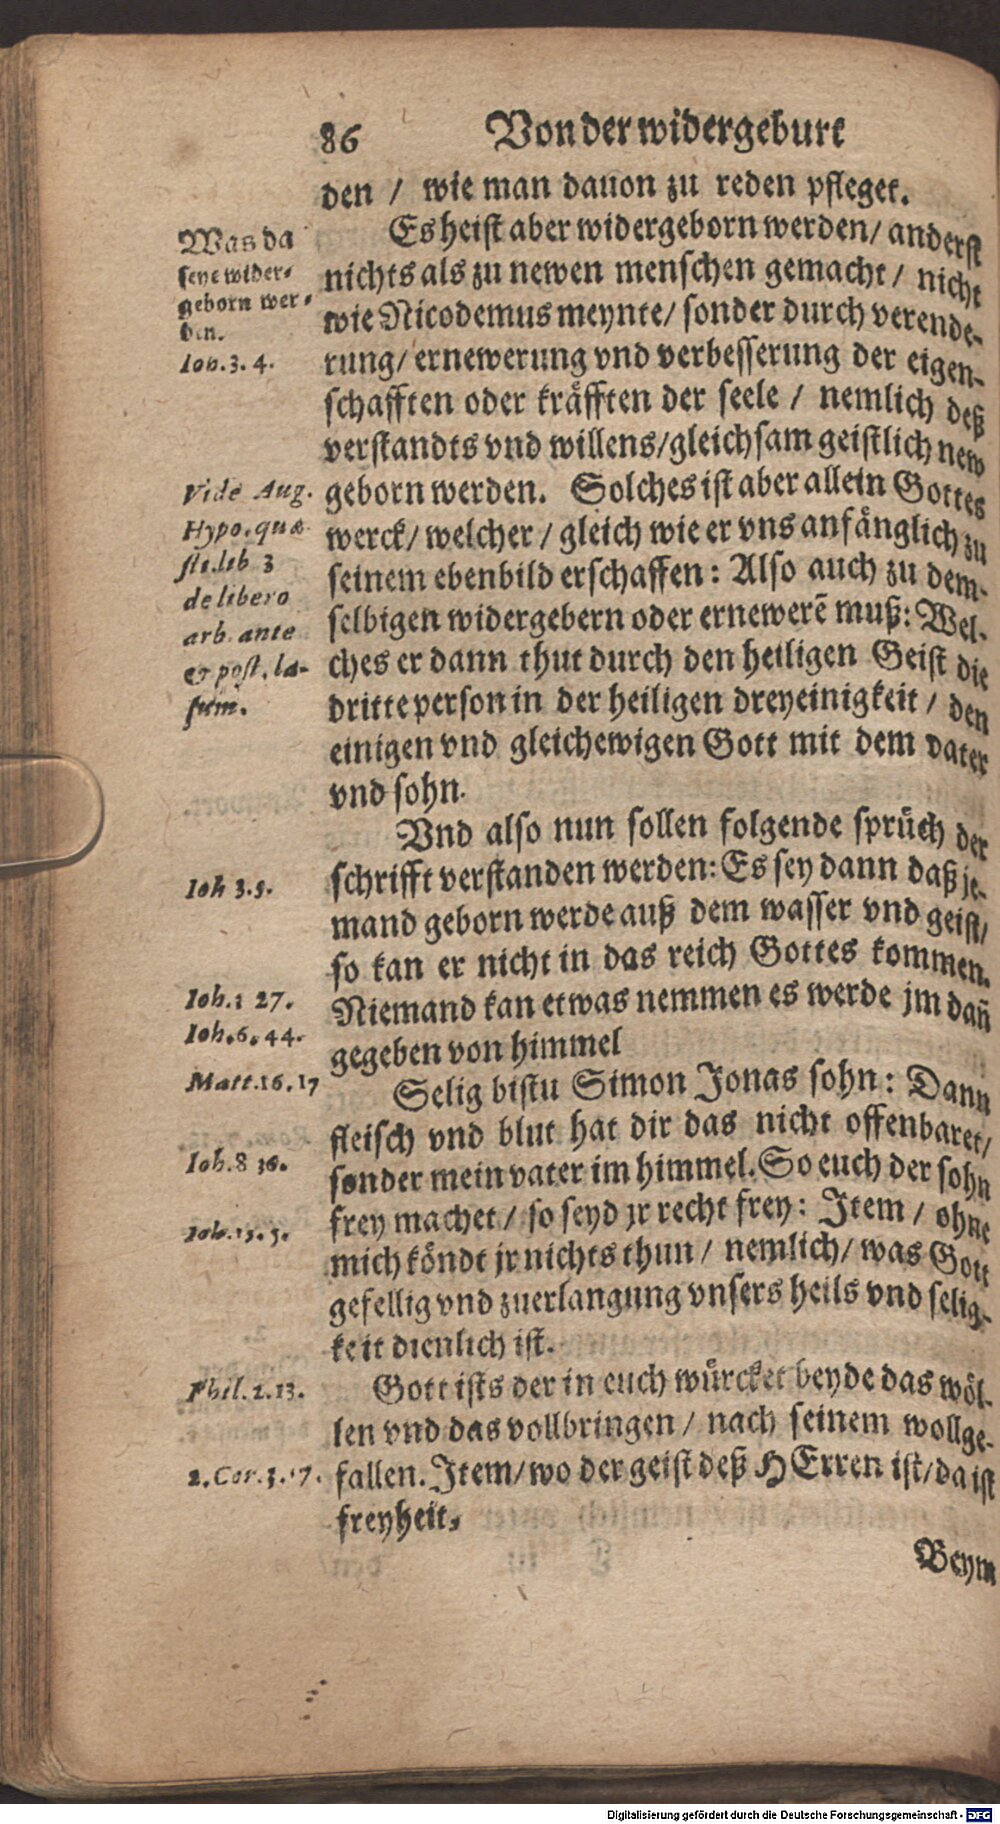 86 Von der widergeburt
den / wie man dauon zu reden pfleget.
Es heist aber widergeborn werden / anderst
nichts als zu newen menschen gemacht / nicht
wie Nicodemus meynte / sonder durch verende-
rung / ernewerung vnd verbesserung der eigen-
schafften oder kräfften der seele / nemlich deß
verstandts vnd willens / gleichsam geistlich new
geborn werden. Solches ist aber allein Gottes
werck / welcher / gleich wie er vns anfänglich zu
seinem ebenbild erschaffen: Also auch zu dem-
selbigen widergebern oder ernewerẽ muß: Wel-
ches er dann thut durch den heiligen Geist die
dritte person in der heiligen dreyeinigkeit / den
einigen vnd gleichewigen Gott mit dem vater
vnd sohn.
Vnd also nun sollen folgende sprüch der
schrifft verstanden werden: Es sey dann daß je-
mand geborn werde auß dem wasser vnd geist /
so kan er nicht in das reich Gottes kommen.
Niemand kan etwas nemmen es werde jm dañ
gegeben von himmel
Selig bistu Simon Jonas sohn: Dann
fleisch vnd blut hat dir das nicht offenbaret /
sonder mein vater im himmel. So euch der sohn
frey machet / so seyd jr recht frey: Item / ohne
mich köndt jr nichts thun / nemlich / was Gott
gefellig vnd zuerlangung vnsers heils vnd selig-
keit dienlich ist.
Gott ists der in euch würcket beyde das wöl-
len vnd das vollbringen / nach seinem wollge-
fallen. Item / wo der geist deß HErren ist / da ist
freyheit.
Beym
Was da
seye wider-
geborn wer-
den.
Ioh. 3. 4.
Vide Aug.
Hypo. quæ
sti. lib 3
de libero
arb. ante
& post. la-
psum.
Ioh 3. 5.
Ioh. 3 27.
Ioh. 6. 44.
Matt. 16. 17
Ioh. 8 36.
Ioh. 15. 5.
Phil. 2. 13.
2. Cor. 3. 17.
Digitalisierung gefördert durch die Deutsche Forschungsgemeinschaft - DFG